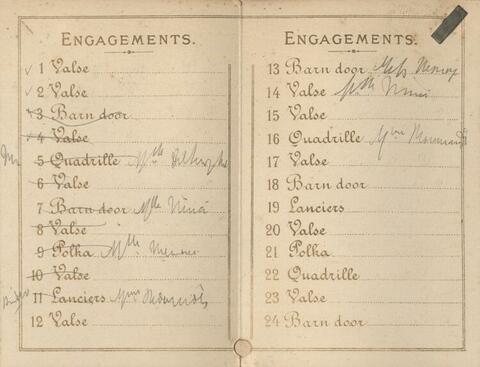 ENGAGEMENTS.
1 Valse
2 Valse
3 Barn door
4 Valse
5 Quadrille Mlle
6 Valse
7 Barn door Mlle Nina
8 Valse
9 Polka Mlle
10 Valse
11 Lanciers Mme
12 Valse
ENGAGEMENTS.
13 Barn door
14 Valse Mlle Nini
15 Valse
16 Quadrille Mme
17 Valse
18 Barn door
19 Lanciers
20 Valse
21 Polka
22 Quadrille
23 Valse
24 Barn door